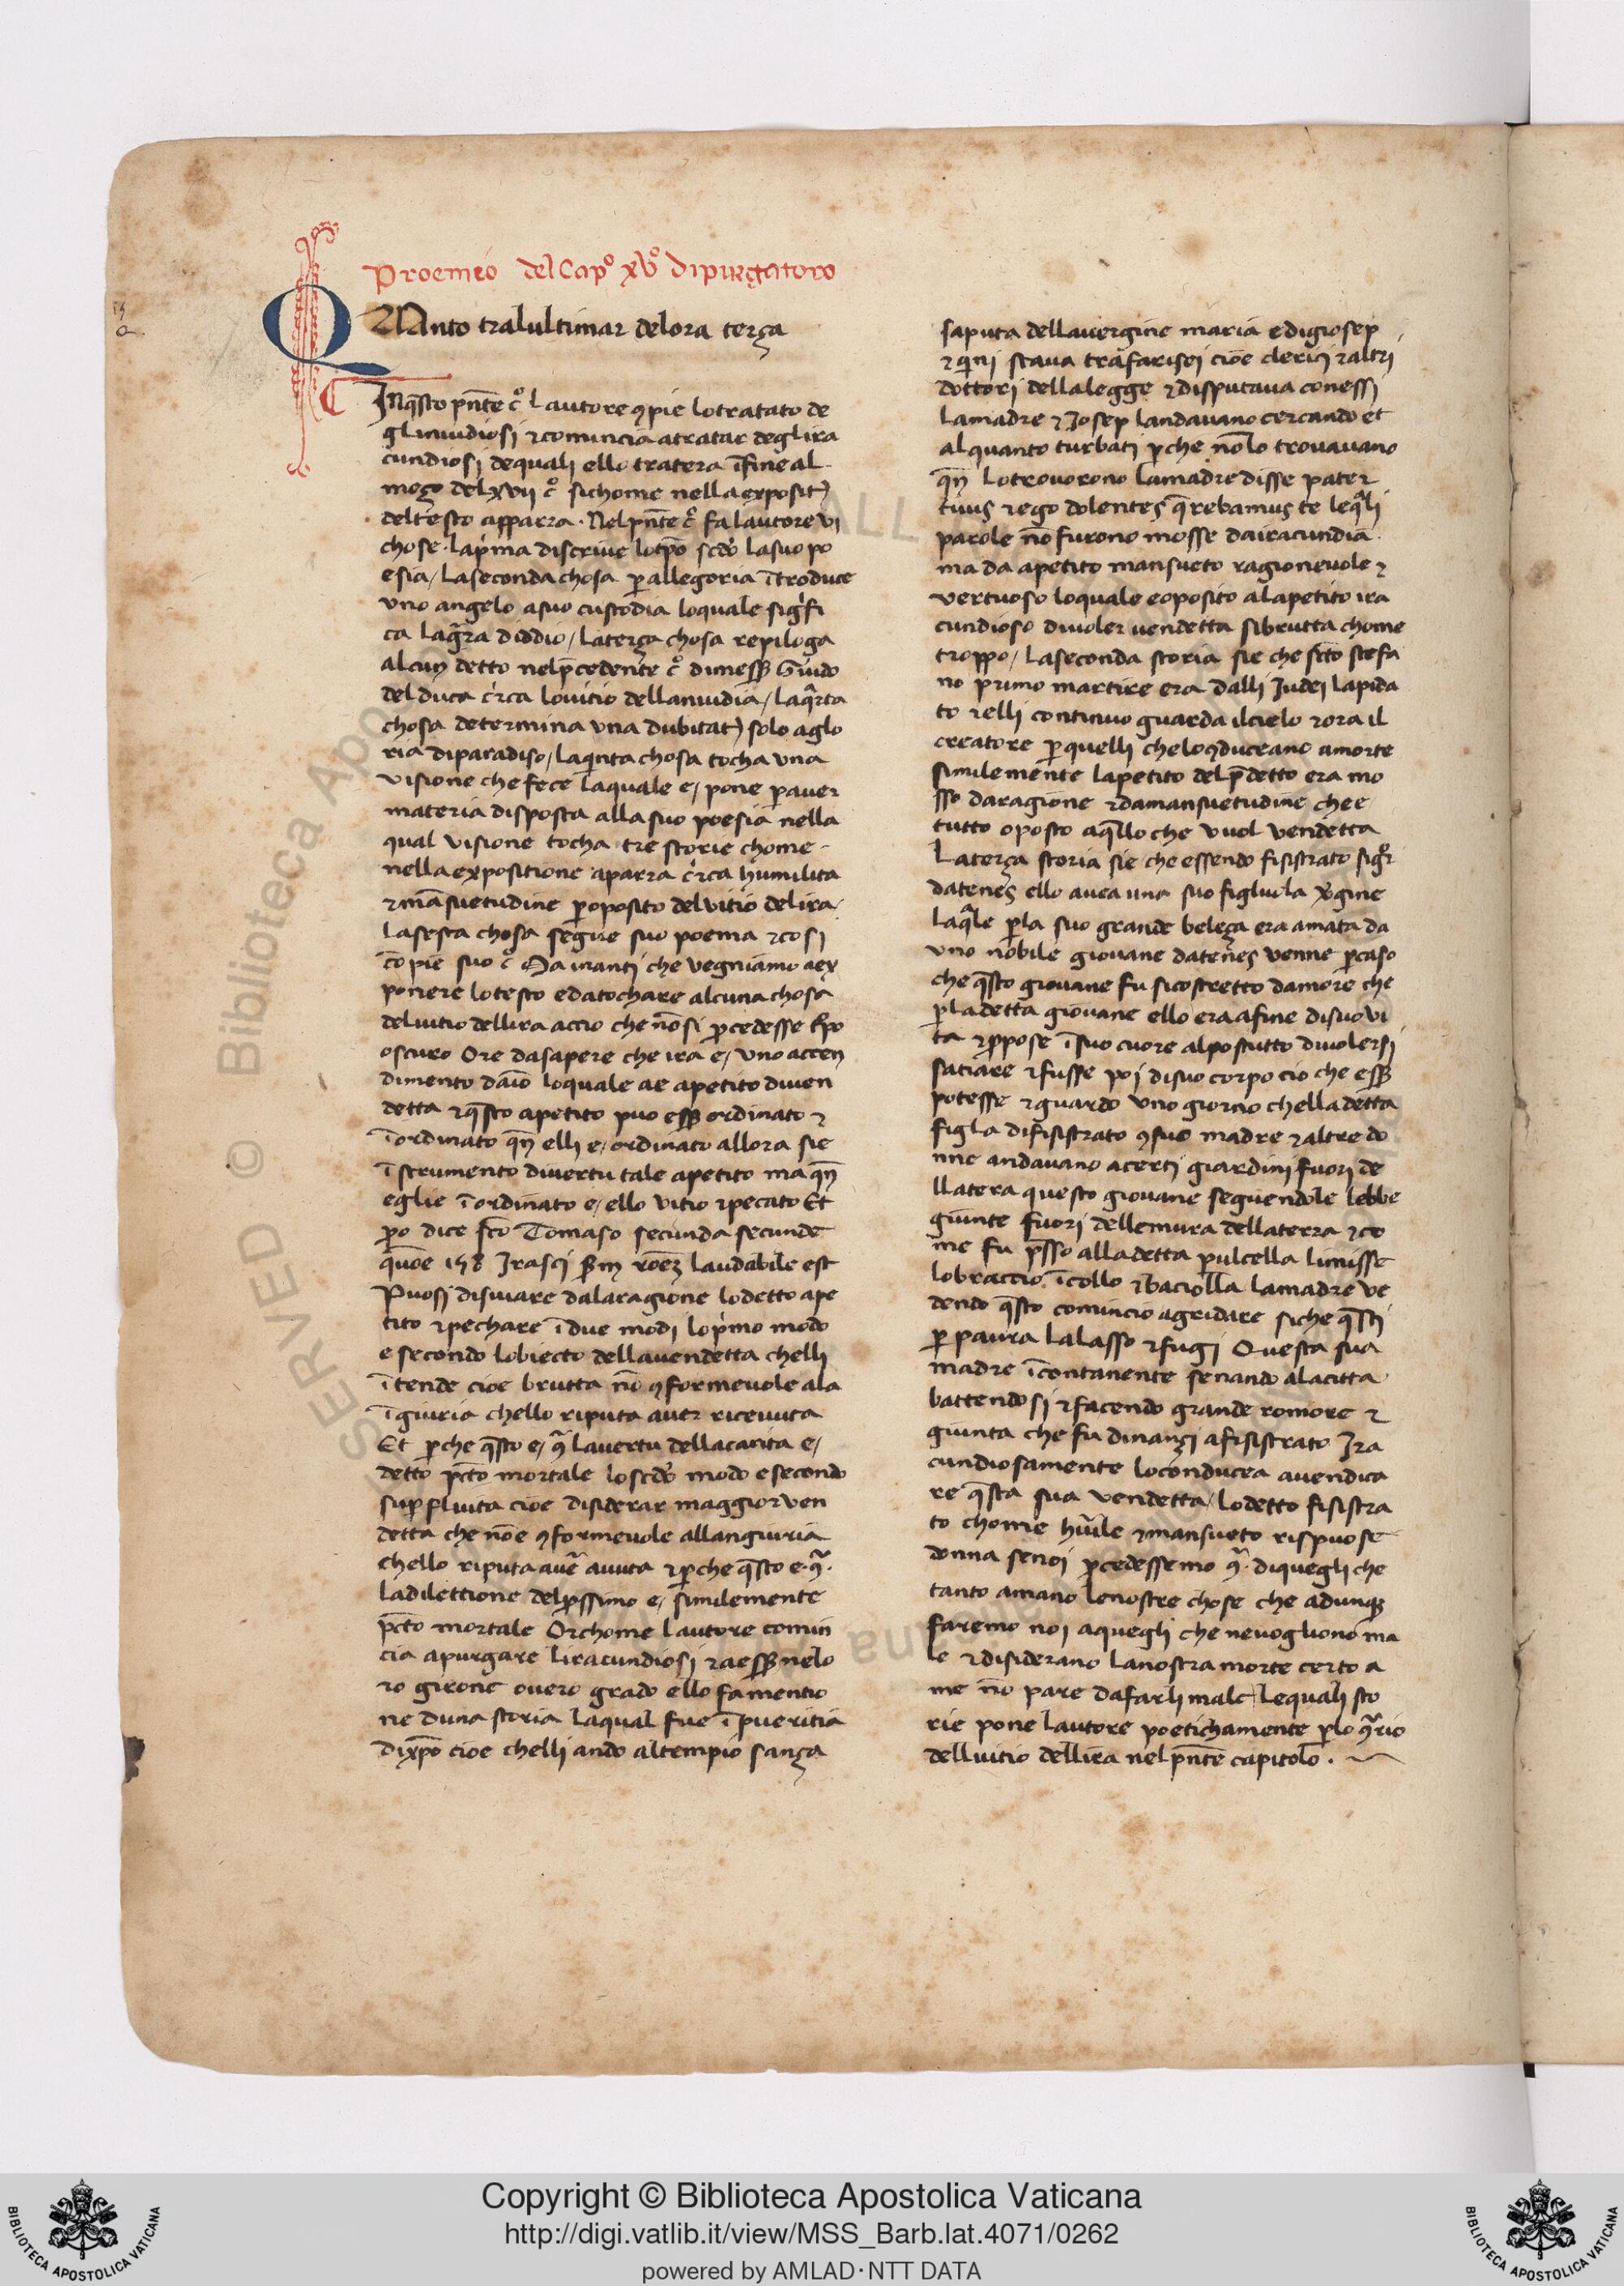 Proemio del Cap° xv° di purgatoro
QUAnto tral ultimar delora terça
INq̄sto p̄nte c° lautore ꝯpie lotratato de
glinuidiosi ⁊comincia atratar deglira
cundiosi dequali ello tratera ī fine al
meço del xvii c° sichome nella exposit)
deltesto apparra. Nel p̄nte c° fa lautore vi
chose. la p̍ma discriue lotp̄o scd̄o lasuo po
esia / laseconda chosa ꝑ allegoria ītroduce
vno angelo asuo custodia loquale sig̍fi
ca lagr̄a diddio / laterça chosa repiloga
alcun detto nel p̄cedente c° dimess̄ Guido
del duca c̍rca lovitio dellanuidia / laqᵃrta
chosa determina vna dubitat) solo aglo
ria diparadiso / laqi̍nta chosa tocha vna
visione che fece laquale e / pone ꝑ auer
materia disposta alla suo poesia nella
qual visione tocha tre storie chome
nella expositione aparra c̍rca humilita
⁊mā suetudine ꝑ oposito del vitio delira.
lasesta chosa segue suo poema ⁊cosi
cō pie suo c° Ma inanti che vegniamo aex
ponere lo testo e datochare alcuna chosa
deluitio dellira accio che nō si ꝓcedesse
oscuro Ore dasapere che ira e / vno accen
dimento daīo loquale ae apetito diuen
detta ⁊q̄sto apetito puo ess̄ ordinato ⁊
īordinato qn̄ elli e / ordinato allora sie
ī strumento diuertu tale apetito ma qn̄
eglie ī ordinato e / ello vitio ⁊pecato Et
ꝑo dice sc̄o Tomaso secunda secunde
158 Irascj laudabile est
Puossi disuiare dalaragione lodetto ape
tito ⁊pechare ī due modj lop̍mo modo
e secondo lobiecto dellauendetta chelli
ī tende cioe brutta nō ꝯformeuole ala
īgiuria chello riputa auer riceuuta
Et ꝑche q̄sto e / ꝯᵃ lauertu dellacarita e /
detto pc̄to mortale loscd̄o modo e secondo
suꝑpluita cioe disiderar maggior ven
detta che nōe ꝯformeuole allangiuria
chello riputa auē auuta ⁊ꝑche q̄sto e. ꝯᵃ.
ladilettione delꝓssimo e / similemente
pc̄to mortale Or chome lautore comin
cia apurgare liracundiosi ⁊aess̄ nelo
ro girone ouero grado ello fa mentio
ne duna storia laqual fue ī pueritia
dixp̄o cioe chelli ando altempio sança
saputa dellauergine maria e digiosep
⁊qi̍ni staua tra farisei cioe clerici ⁊altri
dottori della legge ⁊disputaua conessi
lamadre ⁊Iosep landauano cercando et
alquanto turbati ꝑche nōlo trouauano
qn̄ lotrouorono lamadre disse pater
tuus ⁊ego dolentes q̄rebamus te leqᵃli
parole nō furono mosse dairacundia
ma da apetito mansueto ragioneuole ⁊
vertuoso loquale e oposito al apetito ira
cundioso diuoler vendetta sibrutta chome
troppo / laseconda storia sie che sc̄to stefa
no primo martire era dalli Iudej lapida
to ⁊elli continuo guarda ilcielo ⁊ora il
creatore ꝑ quelli chelo ꝯduceano amorte
similemente lapetito del p̄detto era mo
sso daragione ⁊damansuetudine che e
tutto oposto aq̄llo che vuol vendetta
laterça storia sie che essendo fisistrato sig̍r
datenes ello auea una suo figliuola v̄gine
laqᵃle ꝑla suo grande beleça era amata da
vno nobile giouane datenes venne ꝑcaso
che q̄sto giouane fu sicostretto damore che
ꝑladetta giouane ello era afine disuo vi
ta ⁊ꝓpose ī suo cuore alpostutto diuolersj
satiare ⁊fusse poj disuo corpo cio che ess̄
potesse ⁊guardo vno giorno chelladetta
figla difisistrato ꝯsuo madre ⁊altre do
nne andauano acerti giardini fuori de
llatera questo giouane seguendole lebbe
giunte fuori dellemura dellaterra ⁊co
me fu p̄sso alladetta pulcella limisse
lobraccio ī collo ⁊baciolla lamadre ve
dendo q̄sto comincio agridare siche q̄stj
ꝑ paura lalasso ⁊fugi Questa sua
madre īcontanente senando alacitta
battendosi ⁊facendo grande romore ⁊
giunta che fu dinançi afisistrato Ira
cundiosamente loconducea auendica
re q̄sta sua vendetta / lodetto fisistra
to chome hūile ⁊mansueto rispuose
donna senoj ꝓcedessemo ꝯᵃ. di quegli che
tanto amano lenostre chose che adunqꝫ
faremo noj aquegli che neuogliono ma
le ⁊disiderano lanostra morte certo a
me nō pare dafarli male lequali sto
rie pone lautore poetichamente ꝑlo ꝯᵃrio
delluitio dellira nel p̄nte capitolo.
SERVED © Biblioteca Apo
Copyright © Biblioteca Apostolica Vaticana
http://digi.vatlib.it/view/MSS_Barb.lat.4071/0262
powered by AMLAD·NTT DATA
BIBLIOTECA APOSTOLICA VATICANA
BIBLIOTECA APOSTOLICA VATICANA